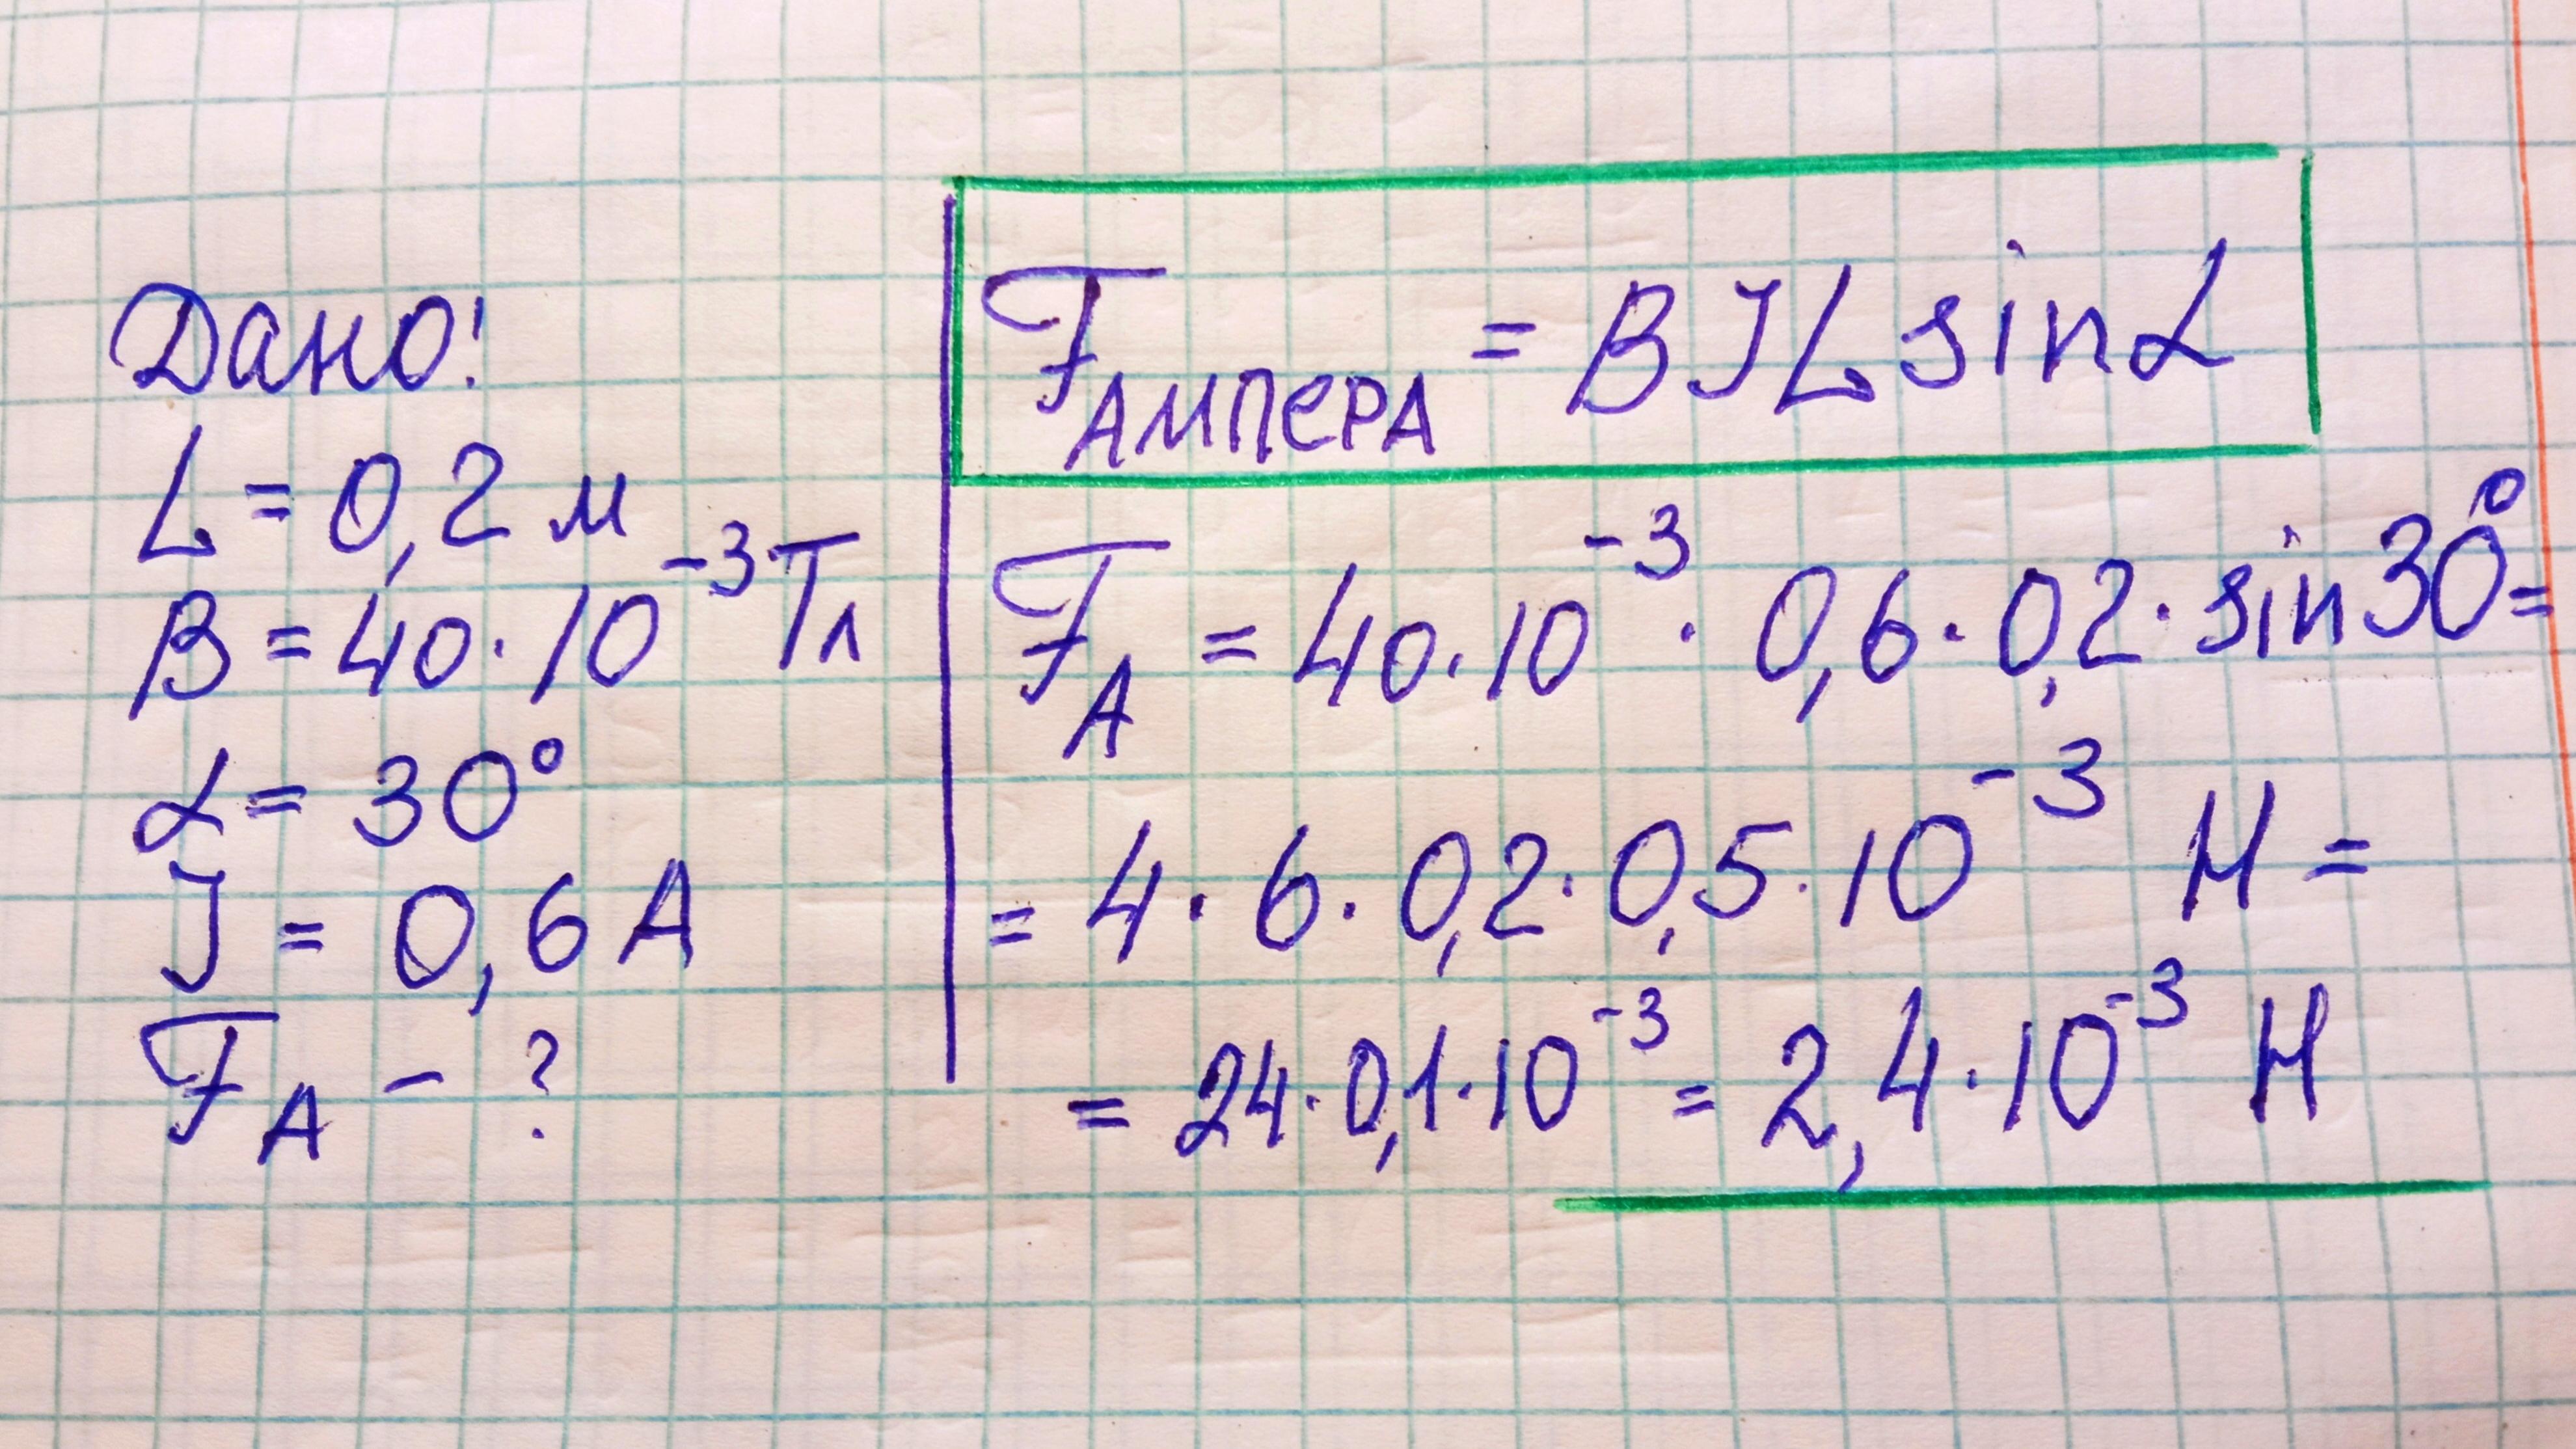 Дано!
L = 0,2 м
B = 40·10⁻³Тл
α = 30°
J = 0,6 А
F_A – ?
F_Ампера = BJL sinα
F_A = 40·10⁻³· 0,6· 0,2· sin30°=
= 4· 6· 0,2· 0,5·10⁻³ Н =
= 24·0,1·10⁻³ = 2,4·10⁻³ Н